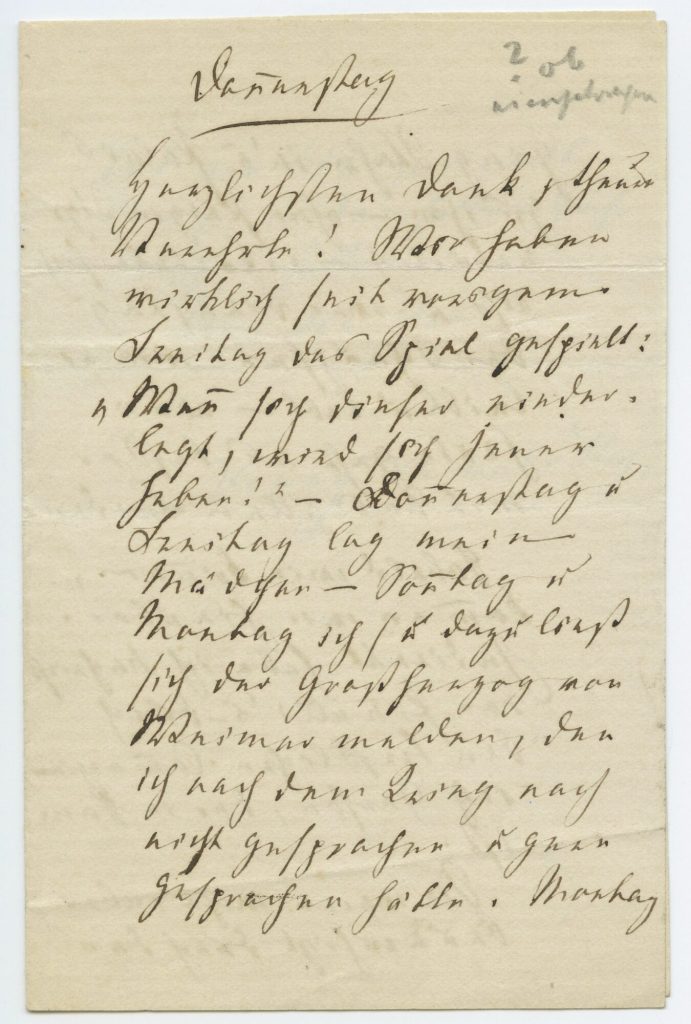 Donnerstag
Herzlichsten Dank, theure
Verehrte! Wir haben
wirklich seit vorigem
Freitag das Spiel gespielt:
„Wenn sich dieser nieder-
legt, wird sich jener
heben!“ – Donnerstag u
Freitag lag mein
Mädchen – Sonntag u
Montag ich, u dazu ließ
sich der Großherzog von
Weimar melden, den
ich nach dem Krieg noch
nicht gesprochen u gern
gesprochen hätte. Montag
2 ob